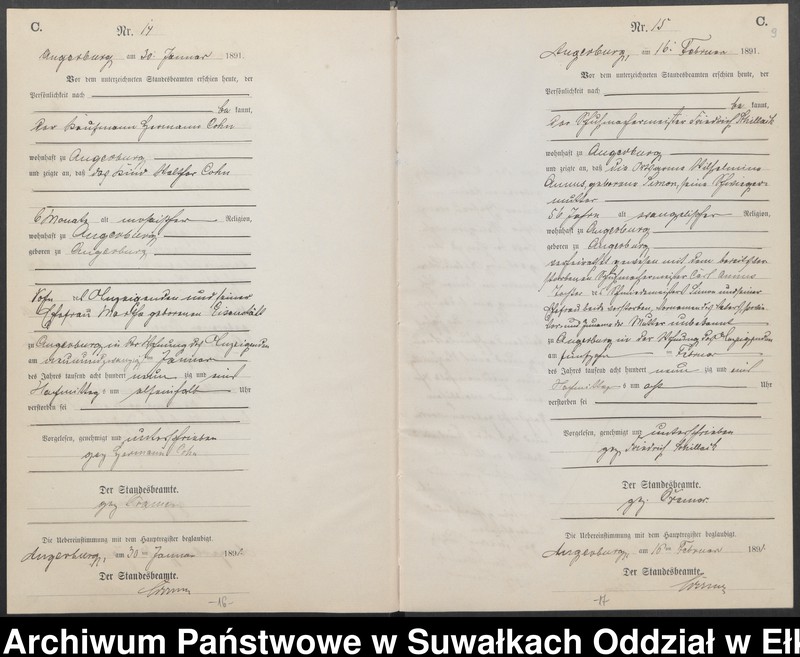 C.
Nr. 14
Angerburg, am 30. Januar 1891.
Vor dem unterzeichneten Standesbeamten erschien heute, der
Persönlichkeit nach
be kannt,
der Kaufmann Hermann Cohn
wohnhaft zu Angerburg
und zeigte an, daß das Kind Walther Cohn
6 Monate alt mosaischer Religion,
wohnhaft zu Angerburg
geboren zu Angerburg
Sohn des Anzeigenden und seiner
Ehefrau geborenen Eisenstädt
zu Angerburg in der Wohnung des Anzeigenden
am neunundzwanzigsten Januar
des Jahres tausend acht hundert neun zig und eins
Nachmittags um Uhr
verstorben sei
Vorgelesen, genehmigt und unterschrieben
gez. Hermann Cohn
Der Standesbeamte.
gez.
Die Uebereinstimmung mit dem Hauptregister beglaubigt.
Angerburg, am 30ten Januar 1891
Der Standesbeamte.
-16-
C.
9
Nr. 15
Angerburg, am 16. Februar 1891.
Vor dem unterzeichneten Standesbeamten erschien heute, der
Persönlichkeit nach
be kannt,
der Schuhmachermeister Friedrich
wohnhaft zu Angerburg
und zeigte an, daß die Wilhelmine
geborene Simon, seine Schwieger-
mutter
56 Jahre alt evangelischer Religion,
wohnhaft zu Angerburg
geboren zu Angerburg
verheirathet gewesen mit dem bereits ver-
storbenen Schuhmachermeister Carl
Tochter des Schmiedemeisters Simon und seiner
Ehefrau beide verstorben, Vornamen des Vaters
und der Mutter unbekannt
zu Angerburg in der Wohnung des Anzeigenden
am fünfzehnten Februar
des Jahres tausend acht hundert neun zig und eins
Nachmittags um acht Uhr
verstorben sei
Vorgelesen, genehmigt und unterschrieben
gez. Friedrich
Der Standesbeamte.
gez.
Die Uebereinstimmung mit dem Hauptregister beglaubigt.
Angerburg, am 16ten Februar 1891
Der Standesbeamte.
-17-
Archiwum Państwowe w Suwałkach Oddział w Ełk